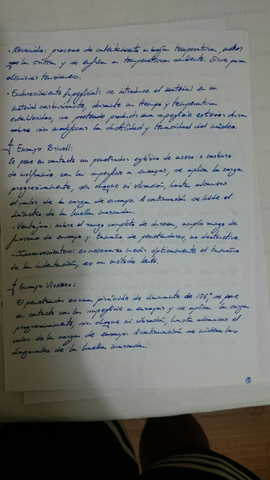 · Revenido: proceso de calentamiento a baja temperatura, menor
que la crítica y se enfría a temperatura ambiente. Sirve para
eliminar tensiones.
· Endurecimiento superficial: se introduce el material en un
material carburizante, durante un tiempo y temperatura
establecidos, se pretende producir una superficie exterior dura
sobre sin modificar la ductilidad y tenacidad del núcleo.
Ensayo Brinell:
Se pone en contacto un penetrador esférico de acero o carburo
de wolframio con la superficie a ensayar, se aplica la carga
progresivamente, sin choque ni vibración, hasta alcanzar
el valor de la carga de ensayo. A continuación se mide el
diámetro de la huella marcada.
· Ventajas: cubre el rango completo de durezas, amplio rango de
fuerzas de ensayo y tamaño de penetradores, no destructivo.
· Inconvenientes: es necesario medir ópticamente el tamaño
de la indentación, es un método lento.
Ensayo Vickers:
El penetrador es una pirámide de diamante de 136°, se pone
en contacto con la superficie a ensayar y se aplica la carga
progresivamente, sin choque ni vibración, hasta alcanzar el
valor de la carga de ensayo. A continuación se miden las
diagonales de la huella marcada.